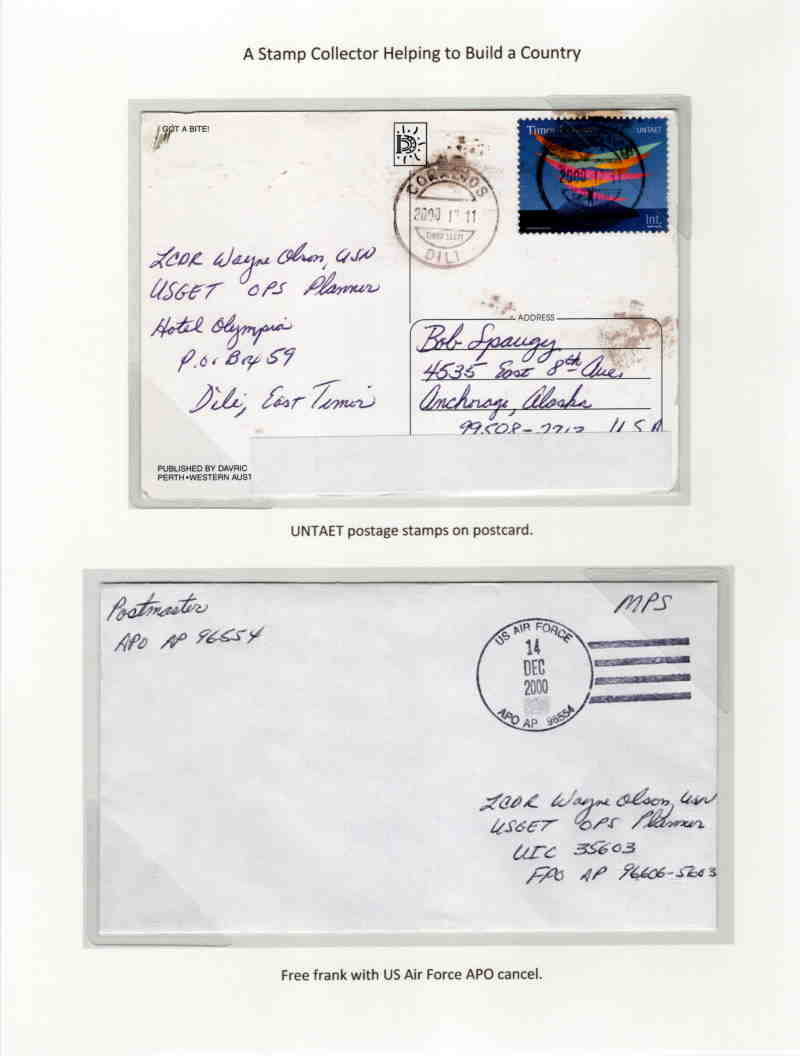 A Stamp Collector Helping to Build a Country
I GOT A BITE!
UNTAET
CORREIOS
2000 12 11
TIMOR LESTE
DILI
Int.
LCDR Wayne Olson, USN
USGET OPS Planner
Hotel Olympia
P.O. Box 59
Dili, East Timor
ADDRESS
Bob Spaugy
4535 East 8th Ave.
Anchorage, Alaska
99508- USA
PUBLISHED BY DAVRIC
PERTH•WESTERN AUST
UNTAET postage stamps on postcard.
Postmaster
APO AP 96554
MPS
US AIR FORCE
14
DEC
2000
APO AP 96554
LCDR Wayne Olson, USN
USGET OPS Planner
UIC 35603
FPO AP 96606-5603
Free frank with US Air Force APO cancel.